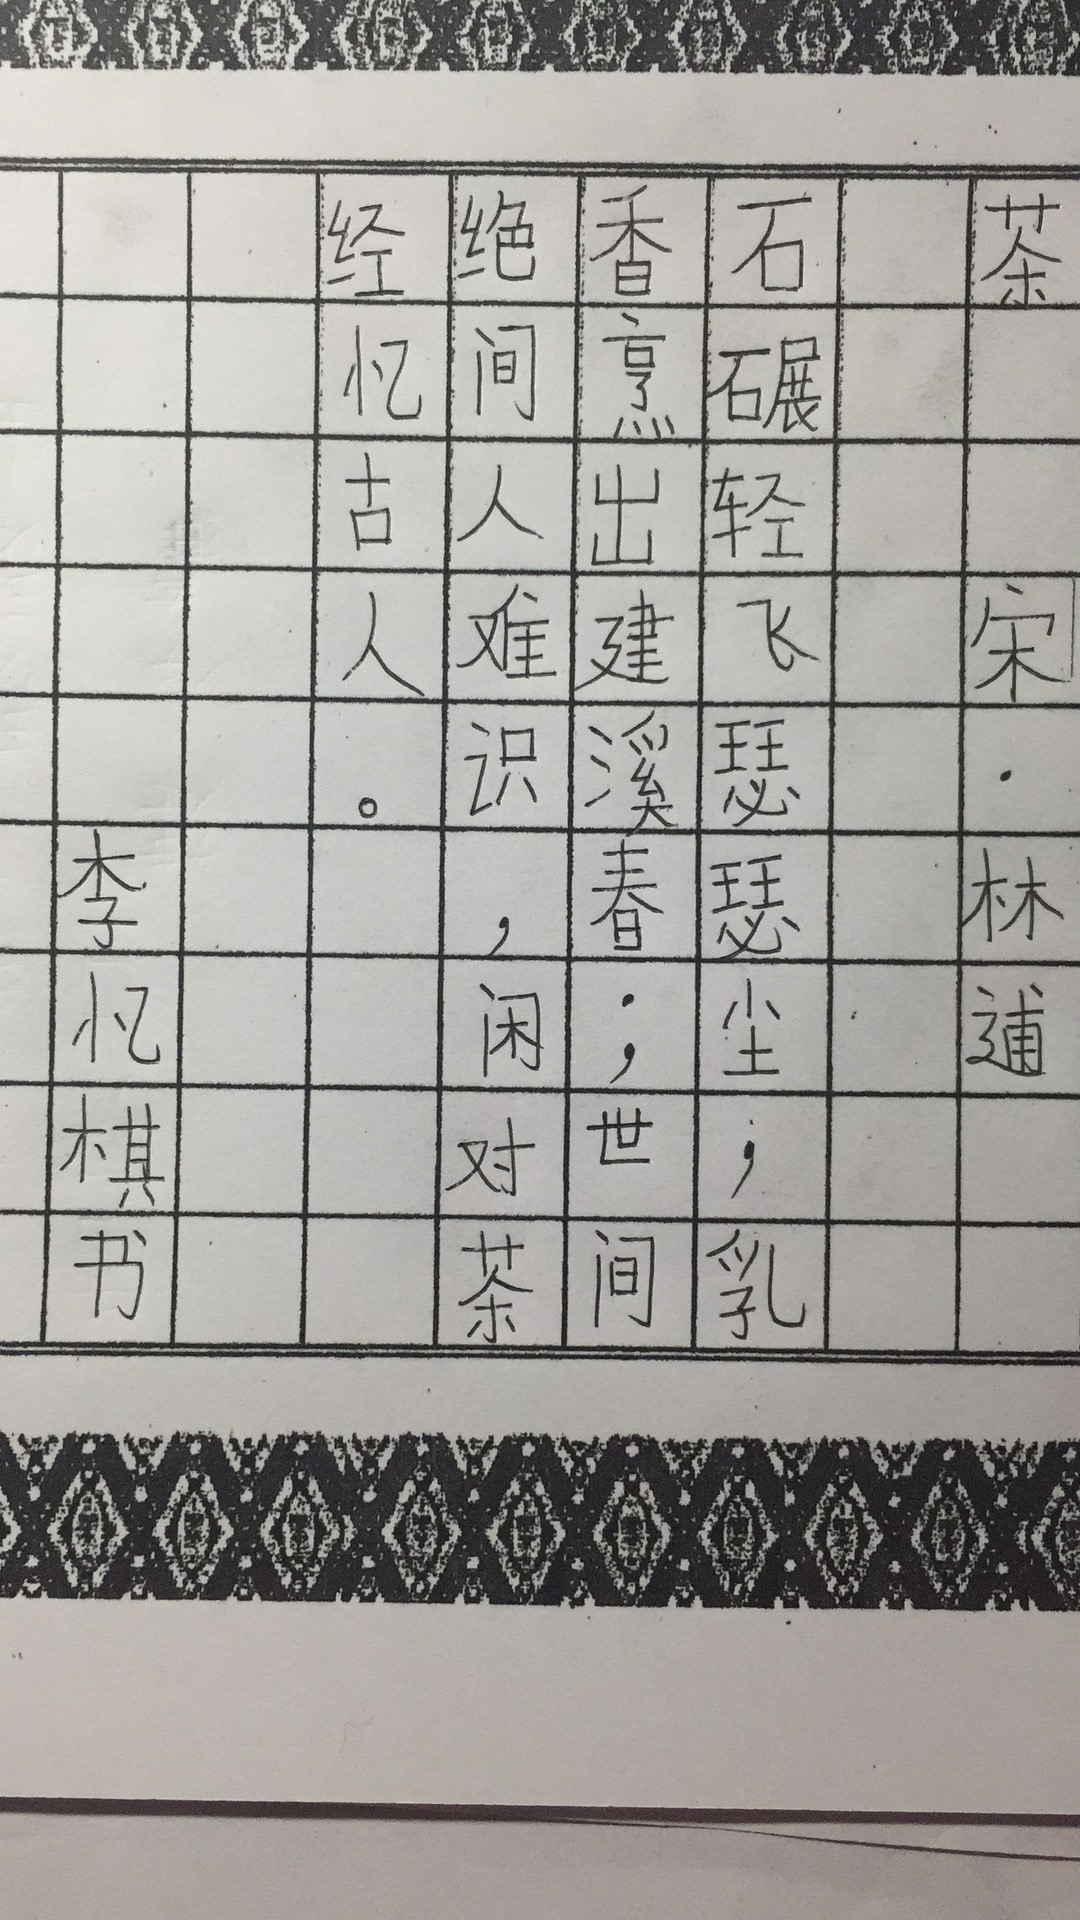 茶 宋·林逋
石碾轻飞瑟瑟尘，乳
香烹出建溪春；世间
绝间人难识，闲对茶
经忆古人。
李忆棋书